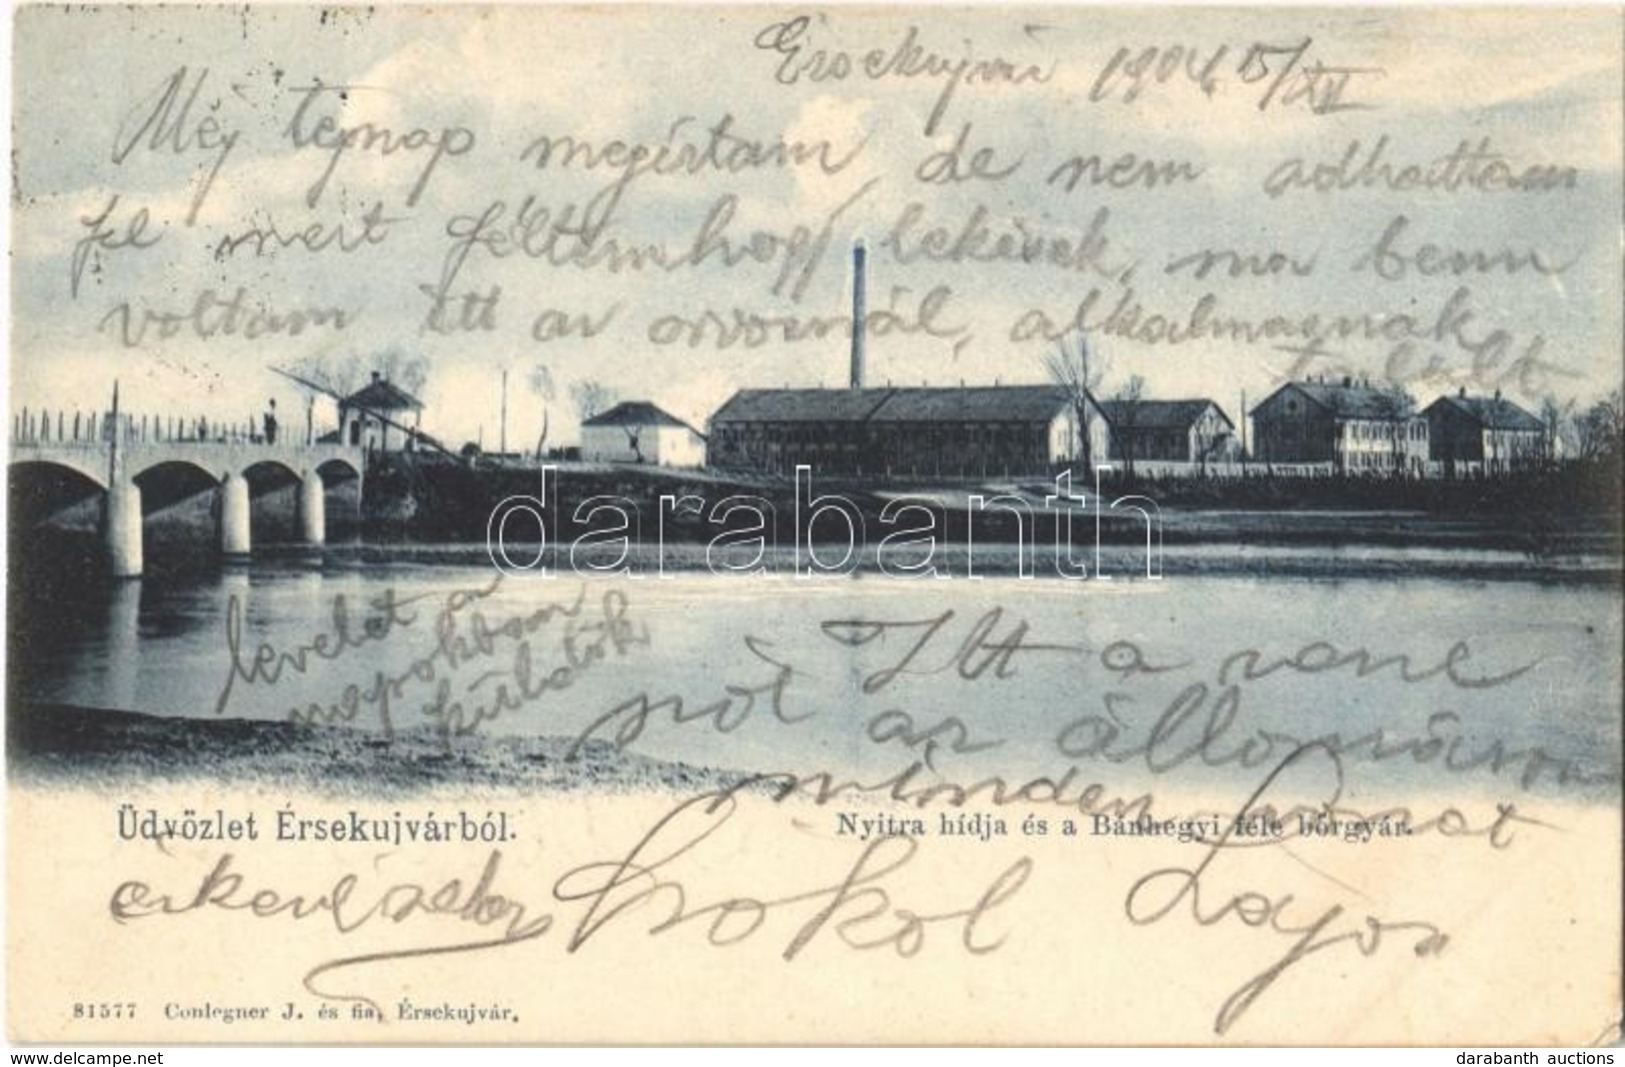 Érsekujvár 1904 15/XII
Még tegnap megírtam de nem adhattam
fel mert féltem hogy lekések, ma benn
voltam itt az orvosnál, alkalmasnak
talált
levelet a
napokban
küldök
Itt a
ról az állomáson
minden
Üdvözlet Érsekujvárból.
Nyitra hídja és a Bánhegyi féle bőrgyár.
Lajos
81577 Conlegner J. és fia, Érsekujvár.
darabanth
www.delcampe.net
darabanth auctions